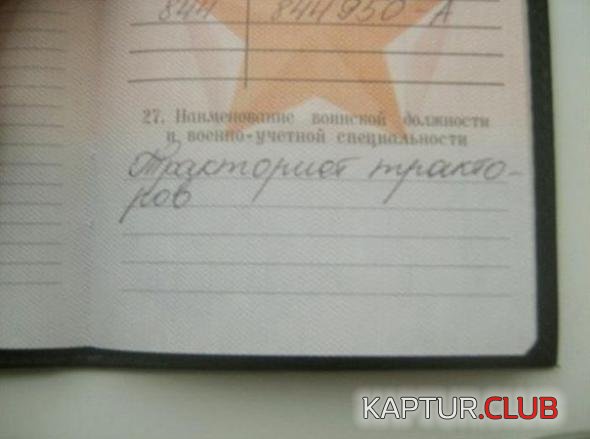 844 844950-А
27. Наименование воинской должности
и военно-учетной специальности
Тракторист тракто-
ров
KAPTUR.CLUB